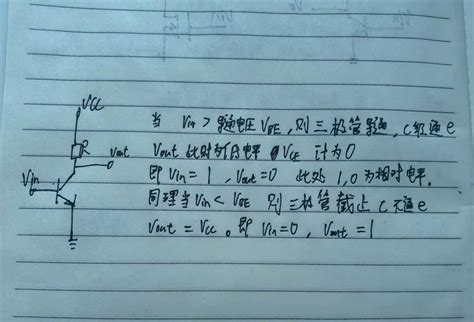 VCC
R
Vout
Vin
当 Vin > 导通电压 VBE, 则三极管导通, C级通e
Vout 此时为电平 VCE 计为0
即 Vin = 1, Vout = 0 此处 1,0为相对电平.
同理当 Vin < VBE 则三极管截止 C不通e
Vout = VCC。即 Vin=0, Vout = 1